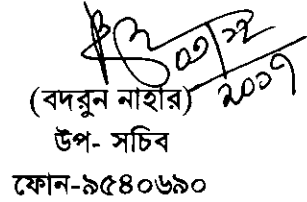 ০৩/১২
২০১৭
(বদরুন নাহার)
উপ- সচিব
ফোন-৯৫৪০৬৯০